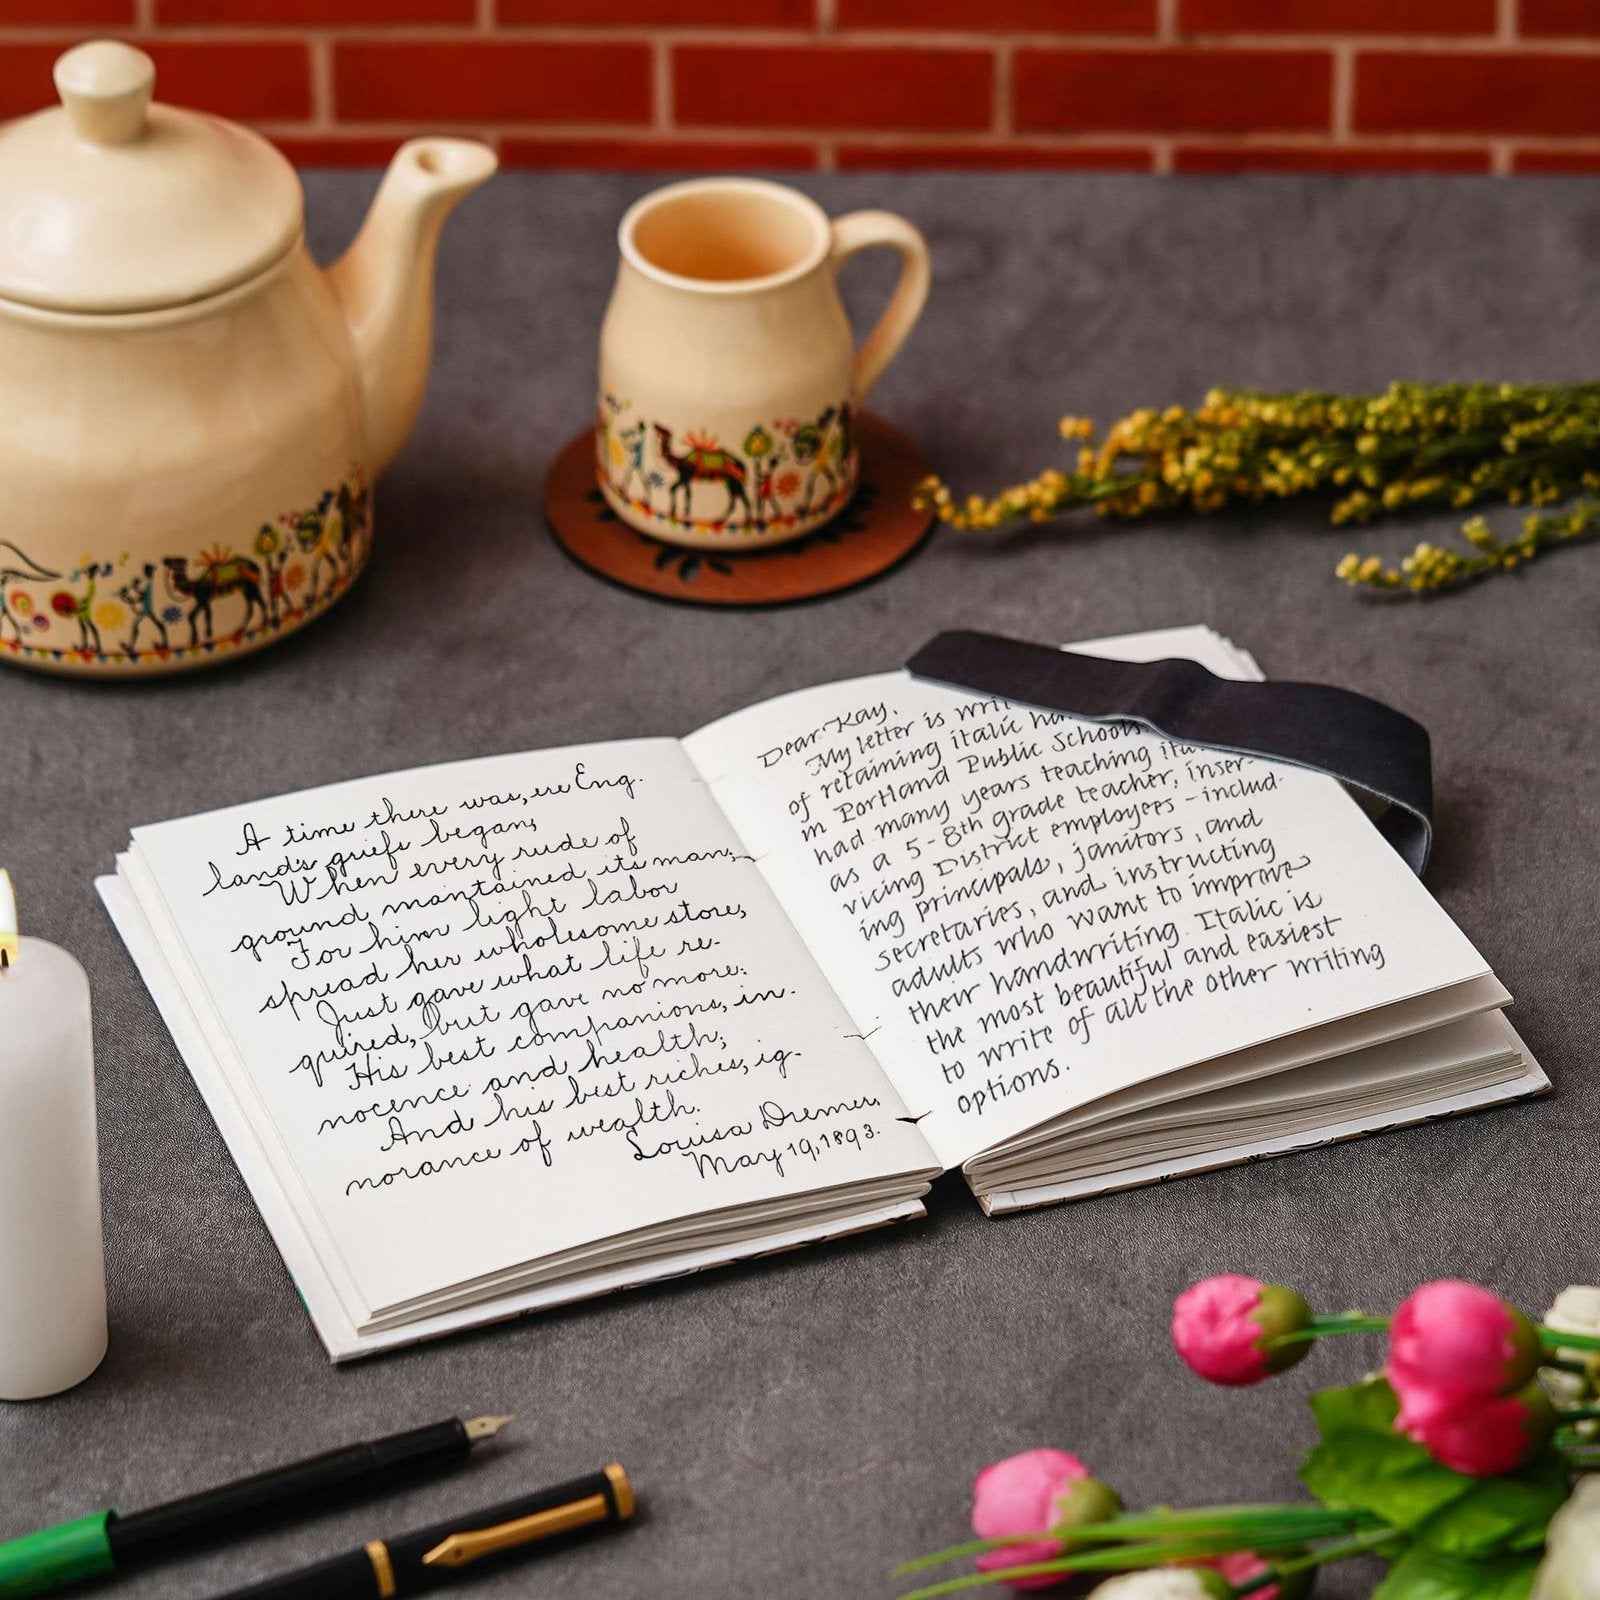 A time there was, ere Eng.
lands griefs began,
When every rude of
ground maintained its man;
For him light labor
spread her wholesome store,
Just gave what life re-
quired, but gave no more:
His best companions, in-
nocence and health;
And his best riches, ig-
norance of wealth.
Louisa Diemer,
May 19, 1893.
Dear Kay,
My letter is
of retaining italic
in Portland Public Schools
had many years teaching
as a 5-8th grade teacher, inser-
vicing District employees - includ-
ing principals, janitors, and
secretaries, and instructing
adults who want to improve
their handwriting. Italic is
the most beautiful and easiest
to write of all the other writing
options.